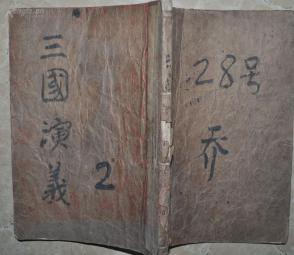 三國演義
2
28号
乔